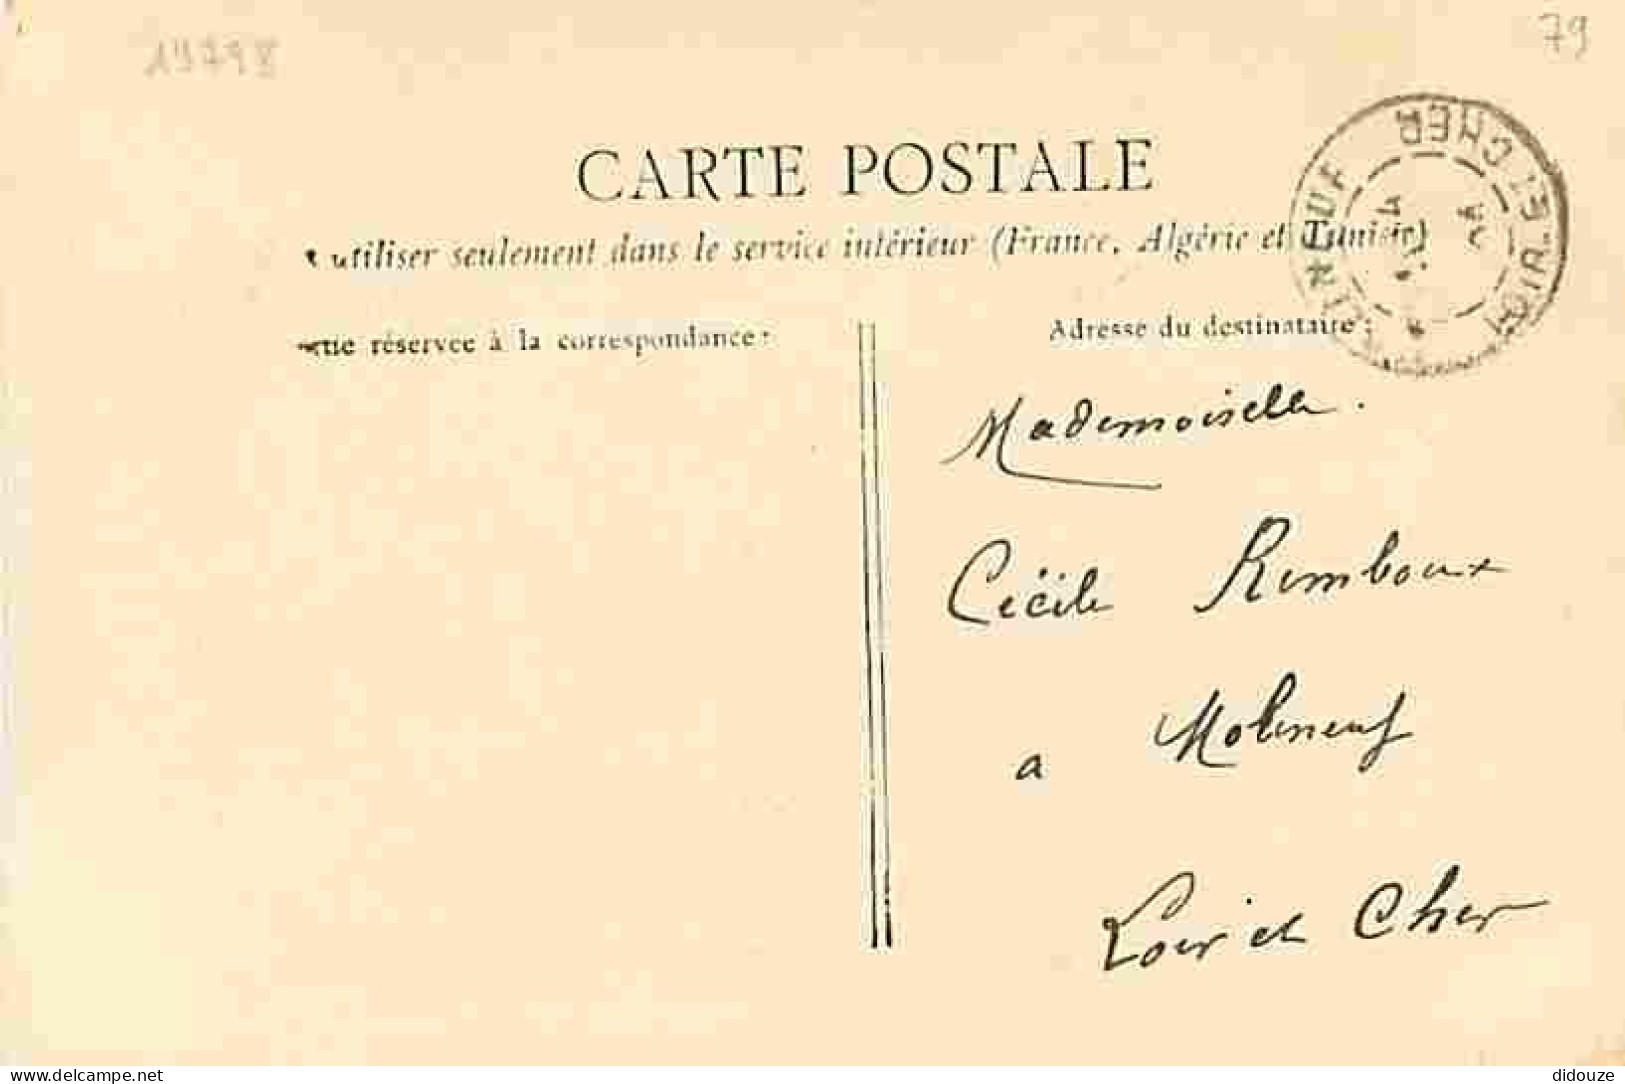 79
CARTE POSTALE
utiliser seulement dans le service intérieur (France, Algérie et Tunisie)
LOIR-ET-CHER
tie réservée à la correspondance:
Adresse du destinataire:
Mademoiselle.
Cécile Remboux
a Molineuf
Loir et Cher
delcampe.net
didouze